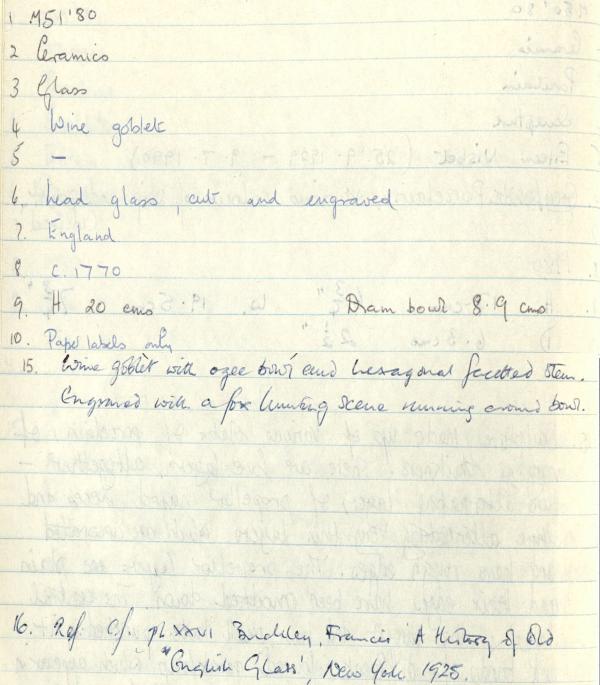 1 M51'80
2 Ceramics
3 Glass
4 Wine goblet
5 -
6. Lead glass, cut and engraved
7. England
8 c. 1770
9. H 20 cms Diam bowl 8.9 cms
10. Paper labels only
15. Wine goblet with ogee bowl and hexagonal facetted stem.
Engraved with a fox hunting scene running around bowl.
16. Ref Cf. pl. XXVI Buckley, Francis 'A History of Old
English Glass', New York 1925.